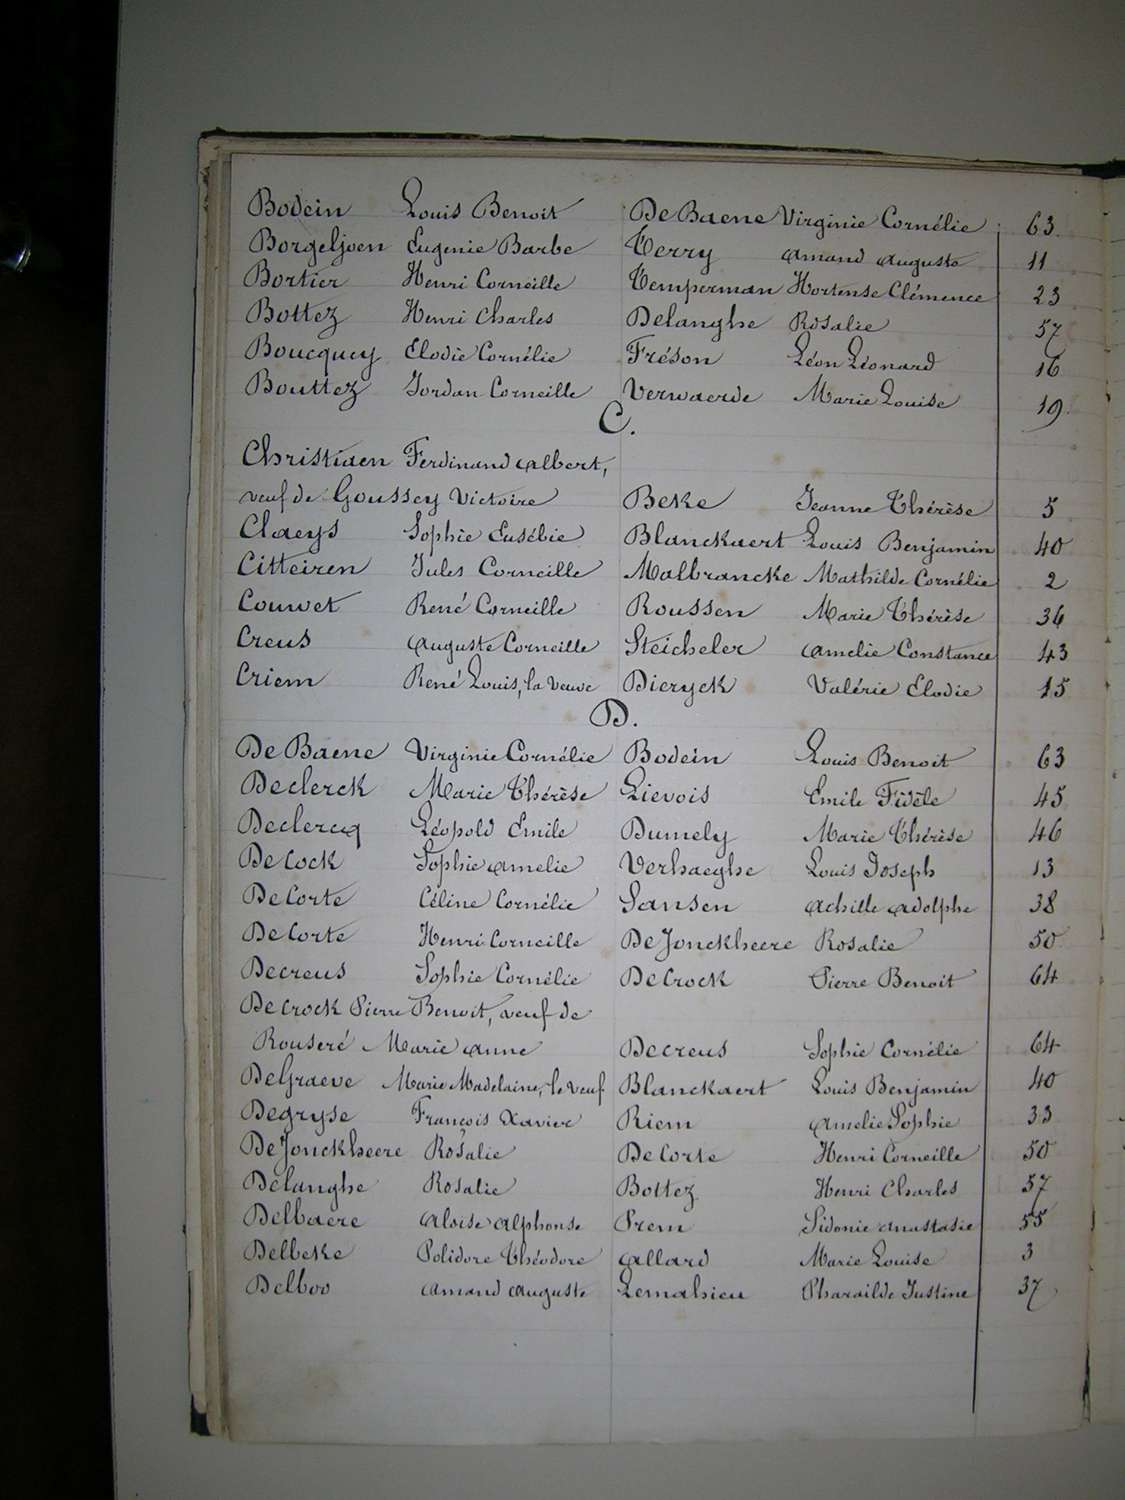 Bodein Louis Benoit De Baene Virginie Cornélie 63
Borgeljoen Eugenie Barbe Terry Amand Auguste 11
Bortier Henri Corneille Temperman Hortense Clémence 23
Bottez Henri Charles Delanghe Rosalie 57
Boucquey Elodie Cornélie Fréson Léon Léonard 16
Bouttez Jordan Corneille Verwaerde Marie Louise 19
C.
Christiaen Ferdinand Albert,
veuf de Goussey Victoire Beke Jeanne Thérèse 5
Claeys Sophie Eusébie Blanckaert Louis Benjamin 40
Citteiren Jules Corneille Malbrancke Mathilde Cornélie 2
Couwet René Corneille Roussen Marie Thérèse 36
Creus Auguste Corneille Steicheler Amelie Constance 43
Criem René Louis, la veuve Dieryck Valérie Elodie 15
D.
De Baene Virginie Cornélie Bodein Louis Benoit 63
Declerck Marie Thérèse Lievois Emile Fidèle 45
Declercq Léopold Emile Dumely Marie Thérèse 46
De Cock Sophie Amelie Verhaeghe Louis Joseph 13
De Corte Céline Cornélie Sansen Achille Adolphe 38
De Corte Henri Corneille De Jonckheere Rosalie 50
Decreus Sophie Cornélie De Crock Pierre Benoit 64
De Crock Pierre Benoit, veuf de
Rouseré Marie Anne Decreus Sophie Cornélie 64
De Graeve Marie Madelaine, le veuf Blanckaert Louis Benjamin 40
Degryse François Xavier Riem Amelie Sophie 33
De Jonckheere Rosalie De Corte Henri Corneille 50
Delanghe Rosalie Bottez Henri Charles 57
Delbaere Aloïse Alphonse Prem Sidonie Anastasie 55
Delbeke Polidore Théodore Allard Marie Louise 3
Delboo Amand Auguste Lemahieu Pharaïlde Justine 37